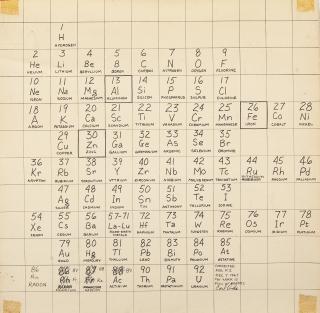 1
H
HYDROGEN
2 3 4 5 6 7 8 9
He Li Be B C N O F
HELIUM LITHIUM BERYLLIUM BORON CARBON NITROGEN OXYGEN FLUORINE
10 11 12 13 14 15 16 17
Ne Na Mg Al Si P S Cl
NEON SODIUM MAGNESIUM ALUMINUM SILICON PHOSPHORUS SULPHUR CHLORINE
18 19 20 21 22 23 24 25 26 27 28
A K Ca Sc Ti V Cr Mn Fe Co Ni
ARGON POTASSIUM CALCIUM SCANDIUM TITANIUM VANADIUM CHROMIUM MANGANESE IRON COBALT NICKEL
29 30 31 32 33 34 35
Cu Zn Ga Ge As Se Br
COPPER ZINC GALLIUM GERMANIUM ARSENIC SELENIUM BROMINE
36 37 38 39 40 41 42 43 44 45 46
Kr Rb Sr Y Zr Nb Mo Tc Ru Rh Pd
KRYPTON RUBIDIUM STRONTIUM YTTRIUM ZIRCONIUM NIOBIUM MOLYBDENUM TECHNETIUM RUTHENIUM RHODIUM PALLADIUM
47 48 49 50 51 52 53
Ag Cd In Sn Sb Te I
SILVER CADMIUM INDIUM TIN ANTIMONY TELLURIUM IODINE
54 55 56 57-71 72 73 74 75 76 77 78
Xe Cs Ba La-Lu Hf Ta W Re Os Ir Pt
XENON CESIUM BARIUM HAFNIUM TANTALUM TUNGSTEN RHENIUM OSMIUM IRIDIUM PLATINUM
79 80 81 82 83 84 85
Au Hg Tl Pb Bi Po At
GOLD MERCURY THALLIUM LEAD BISMUTH POLONIUM ASTATINE
86 87 88 89 90 91 92
Rn Fr Ra Ac Th Pa U
RADON